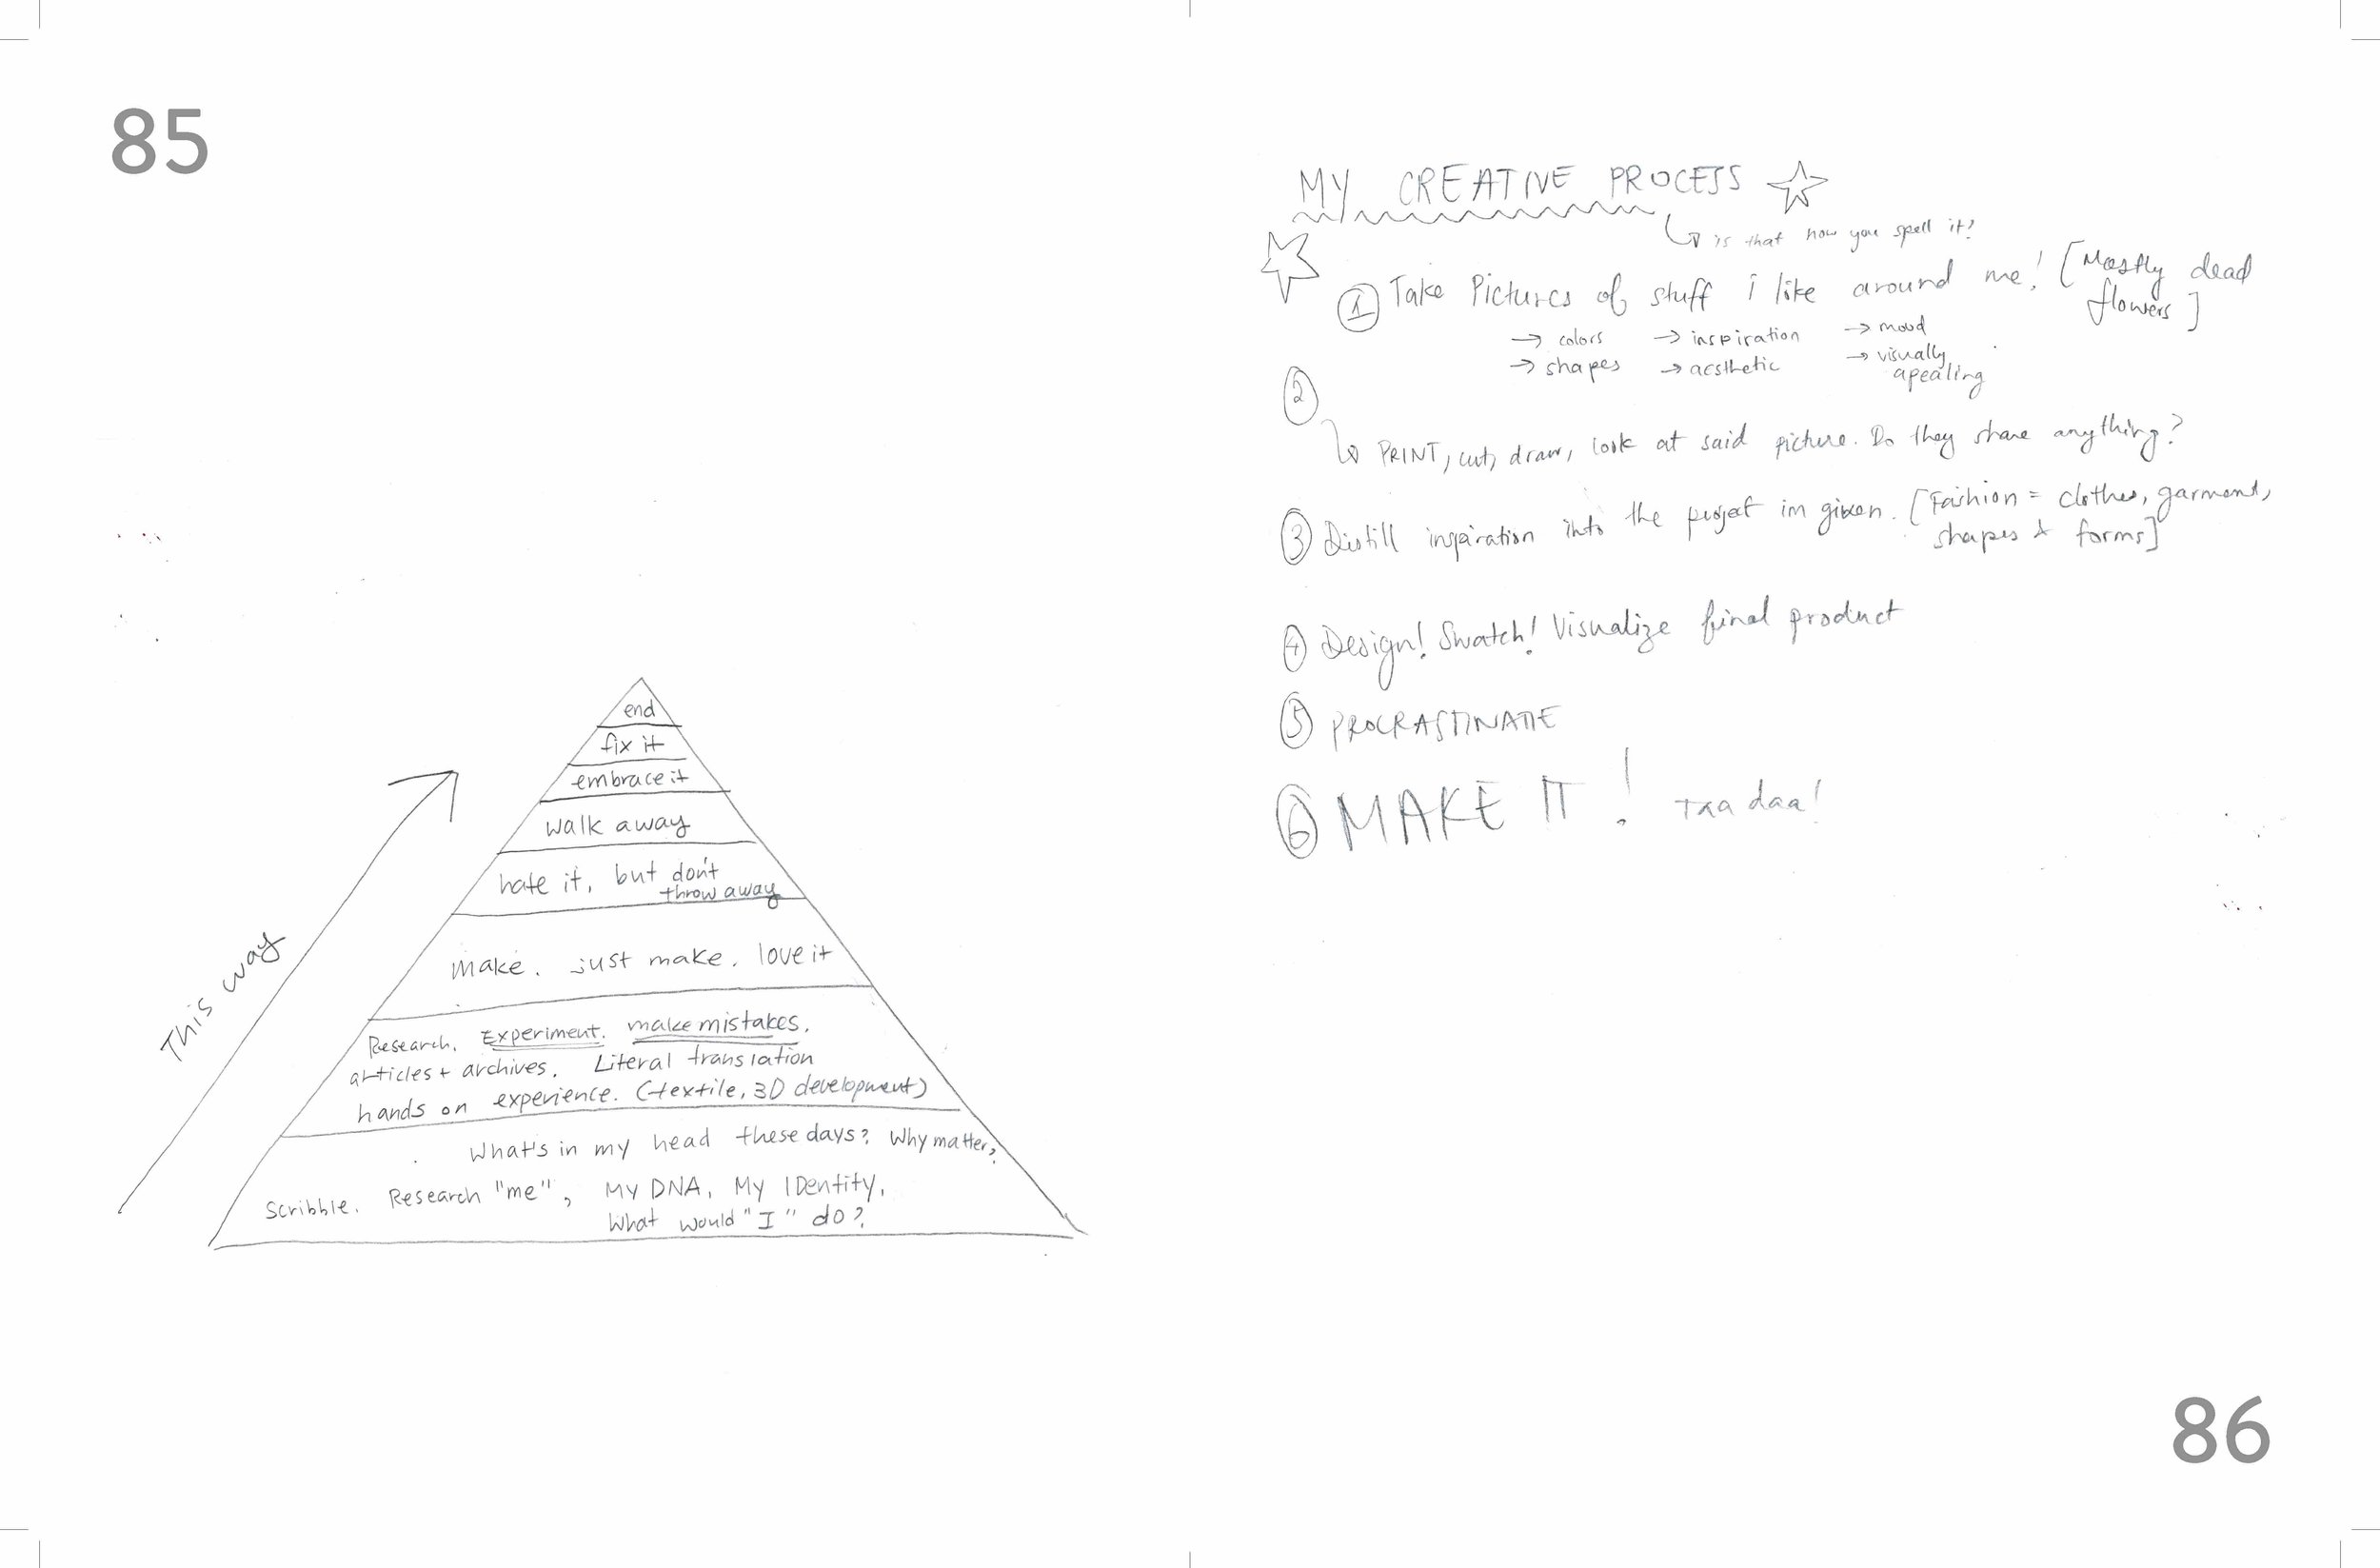 85
This way
end
fix it
embrace it
walk away
hate it, but don't
throw away
make. just make. love it
Research. Experiment. make mistakes.
articles + archives. Literal translation
hands on experience. (textile, 3D development)
What's in my head these days? Why matter?
Scribble. Research "me", My DNA, My IDentity,
What would "I" do?
MY CREATIVE PROCESS
is that how you spell it?
1 Take Pictures of stuff i like around me! [Mostly dead
flowers]
→ colors → inspiration → mood
→ shapes → aesthetic → visually
apealing
2
PRINT, cut, draw, look at said picture. Do they share anything?
3 Distill inspiration into the project im given. [Fashion = clothes, garment,
shapes & forms]
4 Design! Swatch! Visualize final product
5 PROCRASTINATE
6 MAKE IT! Taa daa!
86